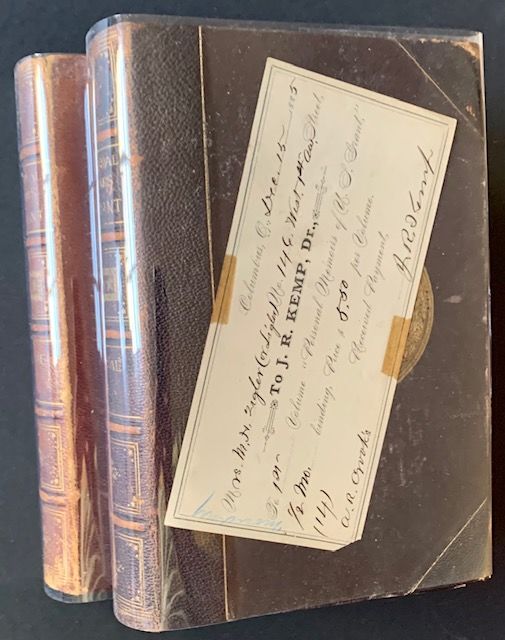 Columbus, O., Dec 15 1885
Mrs. M. H. Zigler (or Sigler) No 146 West 1st Ave Street,
To J. R. KEMP, Dr.,
To 1st Volume "Personal Memoirs of U. S. Grant,"
1/2 Mo. binding, Price $ 5.50 per Volume.
Received Payment,
(141)
J. R. Kemp
A. R. Crooks